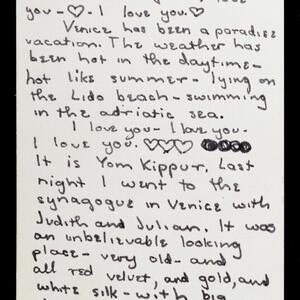 you-♡-I love you.♡
Venice has been a paradise
vacation. The weather has
been hot in the daytime-
hot like summer- lying on
the Lido beach-swimming
in the adriatic sea.
I love you- I love you-
I love you. ♡♡♡
It is Yom Kippur. Last
night I went to the
synagogue in Venice with
Judith and Julian. It was
an unbelievable looking
place- very old- and
all red velvet, and gold, and
white silk- with big